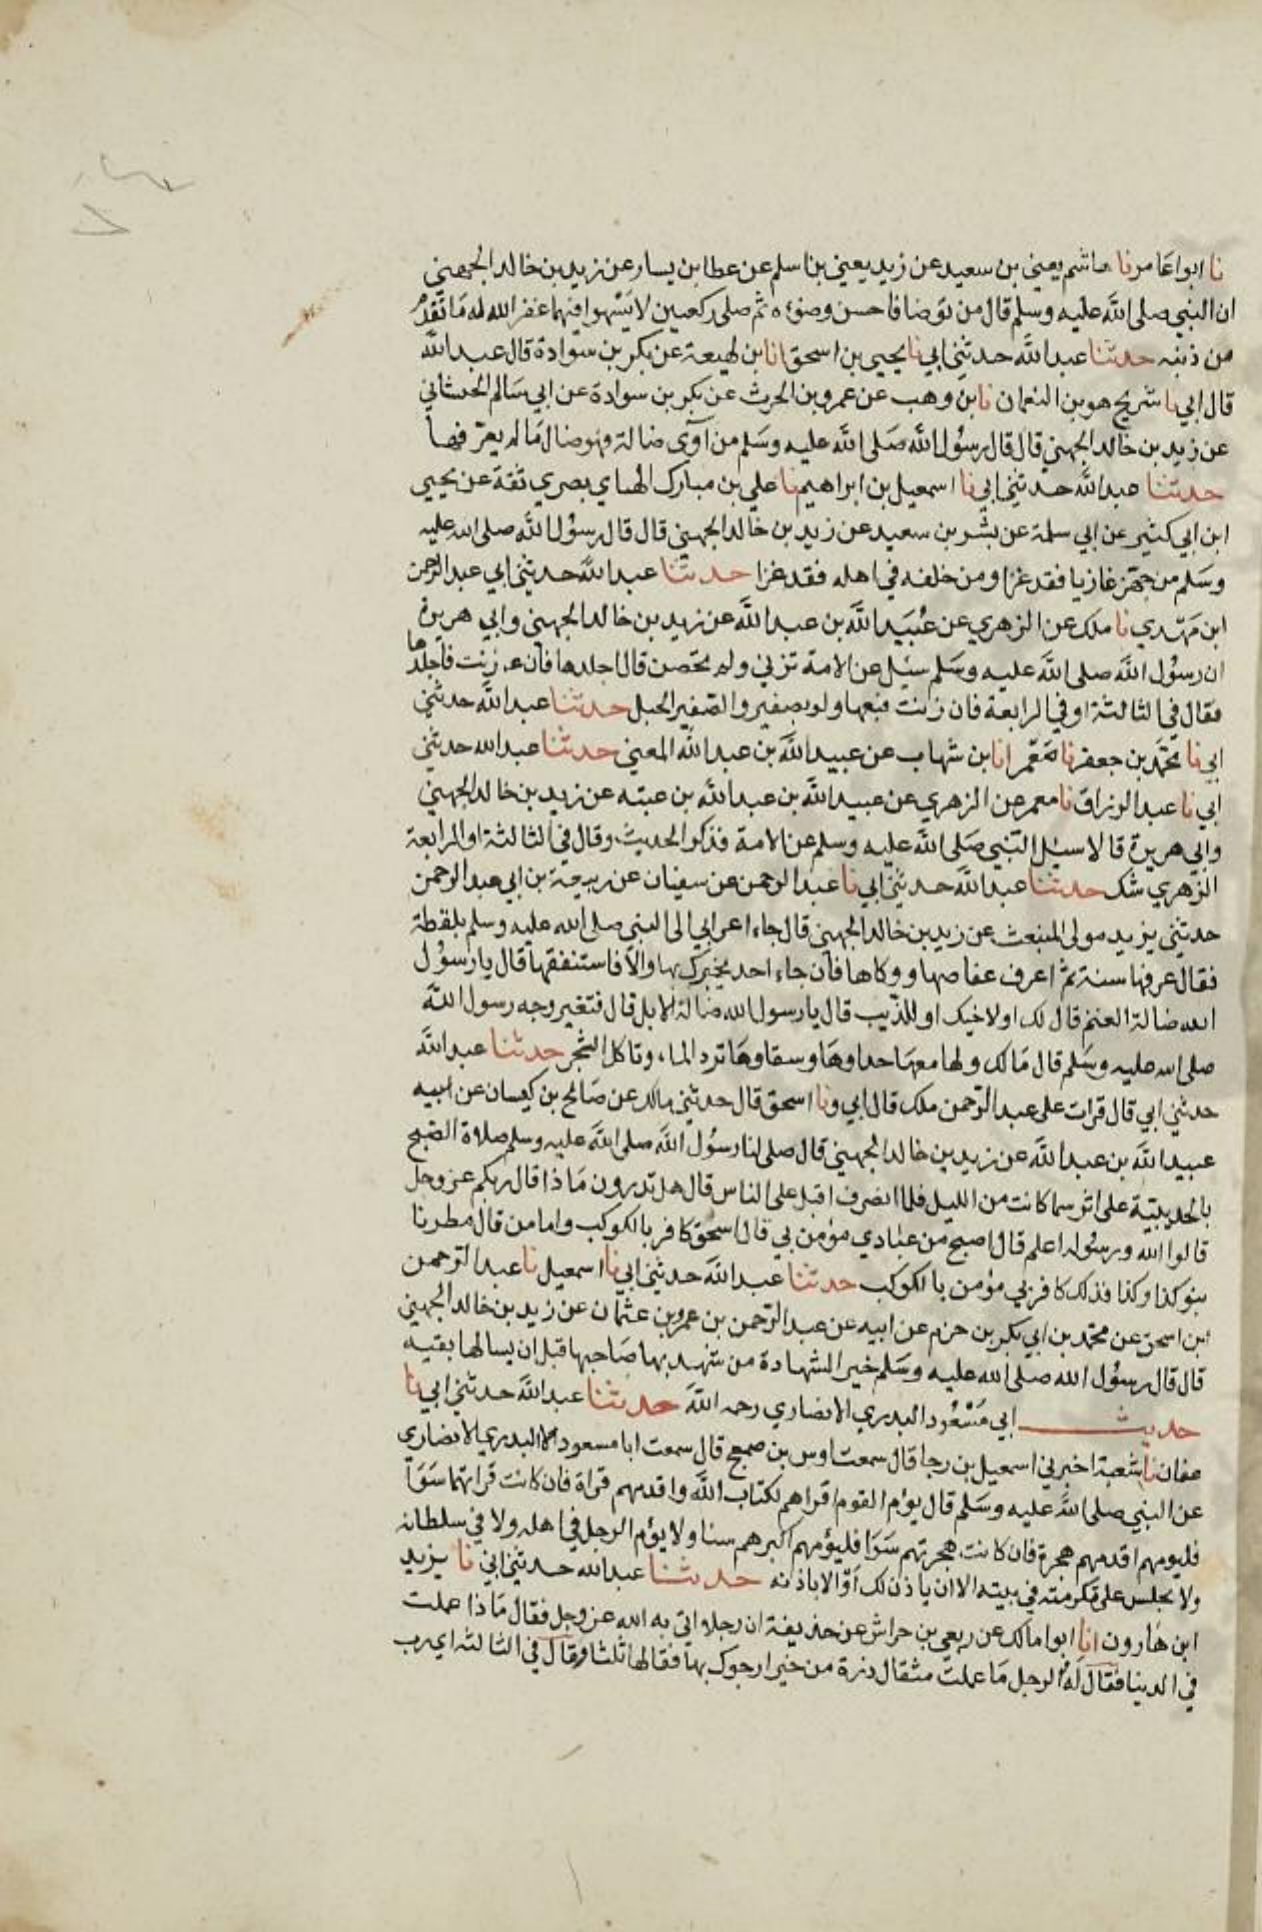 نا ابوا عامر نا هاشم يعني بن سعيد عن زيد يعني بنا سلم عن عطا بن يسار عن زيد بن خالد الجهني
ان النبي صلى الله عليه وسلم قال من توضا فاحسن وضوءه ثم صلى ركعتين لا يسهوا فيهما غفر الله له ما تقدم
من ذنبه حدثنا عبد الله حدثني ابي نا يحيى بن اسحق انا بن لهيعة عن بكر بن سوادة قال عبد الله
قال ابي نا شريح هو بن النعمان نا بن وهب عن عمرو بن الحرث عن بكر بن سوادة عن ابي سالم الجيشاني
عن زيد بن خالد الجهني قال قال رسول الله صلى الله عليه وسلم من اوى ضالة فهو ضال ما لم يعرفها
حدثنا عبد الله حدثني ابي نا اسمعيل بن ابراهيم نا علي بن مبارك الهناي بصري ثقة عن يحيى
ابن ابي كثير عن ابي سلمة عن بشر بن سعيد عن زيد بن خالد الجهني قال قال رسول الله صلى الله عليه
وسلم من جهز غازيا فقد غزا ومن خلفه في اهله فقد غزا حدثنا عبد الله حدثني ابي عبد الرحمن
ابن مهدي نا ملك عن الزهري عن عبيد الله بن عبد الله عن زيد بن خالد الجهني وابي هريرة
ان رسول الله صلى الله عليه وسلم سئل عن الامة تزني ولم تحصن قال اجلدها فان زنت فاجلدها
فقال في الثالثة او في الرابعة فان زنت فبعها ولو بضفير والضفير الحبل حدثنا عبد الله حدثني
ابي نا محمد بن جعفر نا معمر انا بن شهاب عن عبيد الله بن عبد الله المعني حدثنا عبد الله حدثني
ابي نا عبد الرزاق نا معمر عن الزهري عن عبيد الله بن عبد الله بن عتبه عن زيد بن خالد الجهني
وابي هريرة قالا سيل النبي صلى الله عليه وسلم عن الامة فذكر الحديث وقال في الثالثة او الرابعة
الزهري شك حدثنا عبد الله حدثني ابي نا عبد الرحمن عن سفيان عن ربيعة بن ابي عبد الرحمن
حدثني يزيد مولى المنبعث عن زيد بن خالد الجهني قال جاء اعرابي الى النبي صلى الله عليه وسلم بلقطة
فقال عرفها سنة ثم اعرف عفاصها ووكاها فان جاء احد يخبرك بها والا فاستنفقها قال يا رسول
الله ضالة الغنم قال لك او لاخيك او للذيب قال يا رسول الله ضالة الابل قال فتغير وجه رسول الله
صلى الله عليه وسلم قال مالك ولها معها حداوها وسقاوها ترد الماء وتاكل الشجر حدثنا عبد الله
حدثني ابي قال قرات على عبد الرحمن ملك قال ابي ونا اسحق قال حدثني مالك عن صالح بن كيسان عن ابيه
عبيد الله بن عبد الله عن زيد بن خالد الجهني قال صلى لنا رسول الله صلى الله عليه وسلم صلاة الصبح
بالحديبية على اثر سما كانت من الليل فلما انصرف اقبل على الناس قال هل تدرون ماذا قال ربكم عز وجل
قالوا الله ورسوله اعلم قال اصبح من عبادي مؤمن بي قال اسحق كافر بالكوكب واما من قال مطرنا
بنو كذا وكذا فذلك كافر بي مؤمن بالكوكب حدثنا عبد الله حدثني ابي نا اسمعيل نا عبد الرحمن
ابن اسحق عن محمد بن ابي بكر بن حزم عن ابيه عن عبد الرحمن بن عمرو بن عثمان عن زيد بن خالد الجهني
قال قال رسول الله صلى الله عليه وسلم خير الشهادة من شهد بها صاحبها قبل ان يسالها بقيه
حديث ابي مسعود البدري الانصاري رحمه الله حدثنا عبد الله حدثني ابي نا
عفان نا شعبة اخبرني اسمعيل بن رجا قال سمعت اوس بن ضمعج قال سمعت ابا مسعود البدري الانصاري
عن النبي صلى الله عليه وسلم قال يؤم القوم اقراهم لكتاب الله واقدمهم قراة فان كانت قراتهما سوا
فليومهم اقدمهم هجرة فان كانت هجرتهم سوا فليؤمهم اكبرهم سنا ولا يؤم الرجل في اهله ولا في سلطانه
ولا يجلس على تكرمته في بيته الا ان ياذن لك او الا باذنه حدثنا عبد الله حدثني ابي نا يزيد
ابن هارون انا ابوا مالك عن ربعي بن حراش عن حذيفة ان رجلا اتى به الله عز وجل فقال ماذا عملت
في الدنيا فقال له الرجل ما عملت مثقال ذرة من خير ارجوك بها فقالها ثلثا وقال في الثالثه اي رب